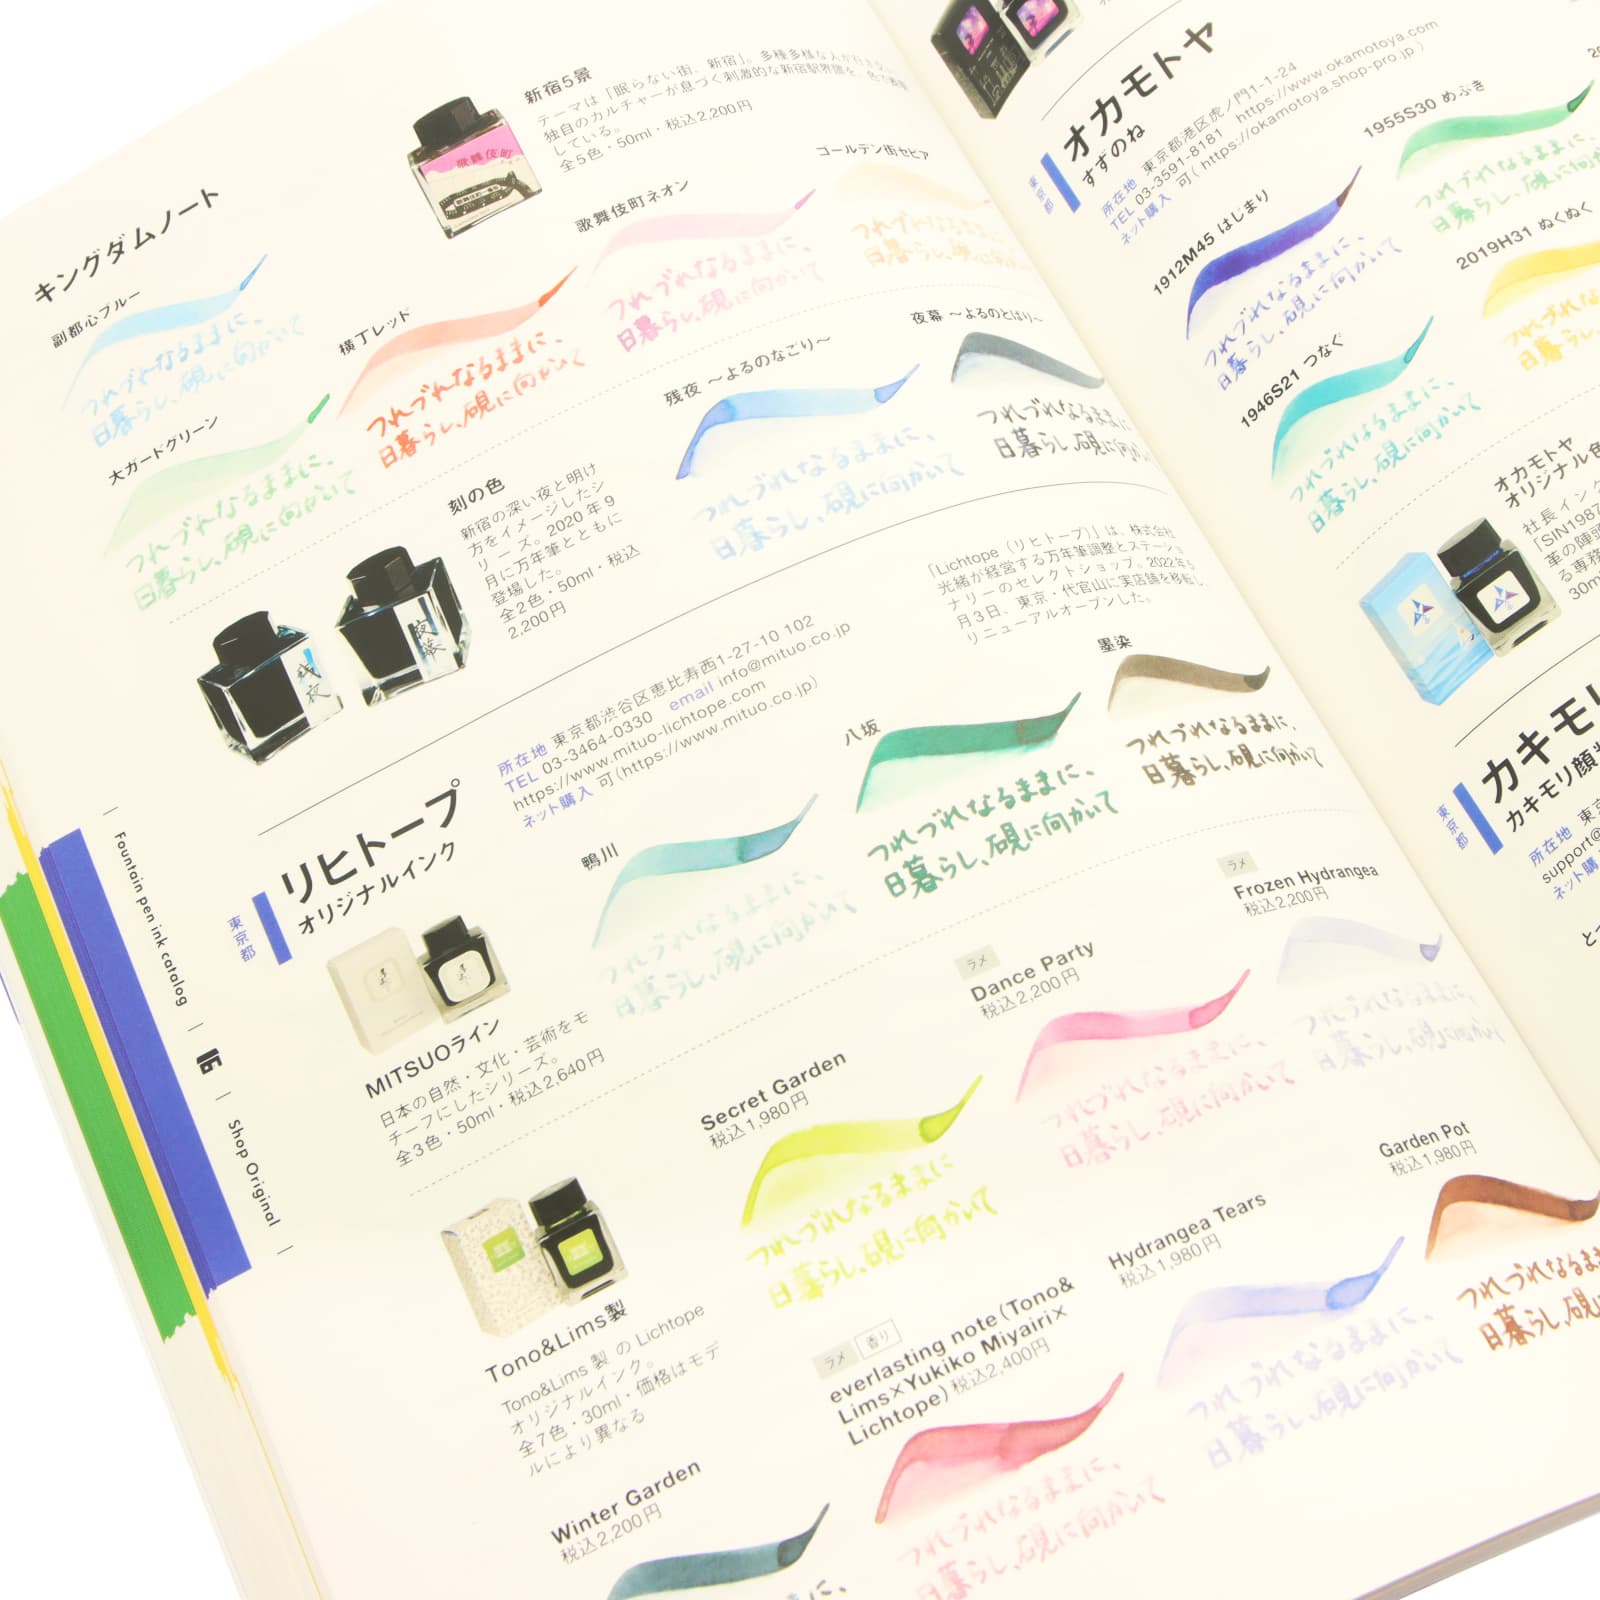 キングダムノート
新宿5景
テーマは「眠らない街、新宿」。多種多様な人が行き
独自のカルチャーが息づく刺激的な新宿駅界隈を、色で
している。
全5色・50ml・税込2,200円
副都心ブルー
つれづれなるままに、
日暮らし、硯に向かいて
横丁レッド
つれづれなるままに、
日暮らし、硯に向かいて
歌舞伎町ネオン
つれづれなるままに、
日暮らし、硯に向かいて
ゴールデン街セピア
つれづれなるままに、
日暮らし、硯に向かいて
大ガードグリーン
つれづれなるままに、
日暮らし、硯に向かいて
刻の色
新宿の深い夜と明け
方をイメージしたシ
リーズ。2020年9
月に万年筆とともに
登場した。
全2色・50ml・税込
2,200円
残夜
夜幕
残夜 〜よるのなごり〜
つれづれなるままに、
日暮らし、硯に向かいて
夜幕 〜よるのとばり〜
つれづれなるままに
日暮らし、硯に向かい
東京都
リヒトープ
オリジナルインク
所在地 東京都渋谷区恵比寿西1-27-10 102
TEL 03-3464-0330 email info@mituo.co.jp
https://www.mituo-lichtope.com
ネット購入 可(https://www.mituo.co.jp)
「Lichtope(リヒトープ)」は、株式会社
光緒が経営する万年筆調整とステーショ
ナリーのセレクトショップ。2022年6
月3日、東京・代官山に実店舗を移転し
リニューアルオープンした。
MITSUOライン
日本の自然・文化・芸術をモ
チーフにしたシリーズ。
全3色・50ml・税込2,640円
鴨川
つれづれなるままに、
日暮らし、硯に向かいて
八坂
つれづれなるままに、
日暮らし、硯に向かいて
墨染
つれづれなるままに、
日暮らし、硯に向かいて
Tono&Lims製
Tono&Lims 製 の Lichtope
オリジナルインク。
全7色・30ml・価格はモデ
ルにより異なる
Secret Garden
税込1,980円
つれづれなるままに
日暮らし、硯に向かいて
ラメ
Dance Party
税込2,200円
つれづれなるままに、
日暮らし、硯に向かいて
ラメ
Frozen Hydrangea
税込2,200円
つれづれなるままに、
日暮らし、硯に向かいて
Winter Garden
税込2,200円
ラメ 香り
everlasting note(Tono&
Lims×Yukiko Miyairi×
Lichtope)税込2,400円
つれづれなるままに、
日暮らし、硯に向かいて
Hydrangea Tears
税込1,980円
つれづれなるままに、
日暮らし、硯に向かいて
Garden Pot
税込1,980円
つれづれなるまま
日暮らし、硯に向
Fountain pen ink catalog
Shop Original
東京都
オカモトヤ
すずのね
所在地 東京都港区虎ノ門1-1-24
TEL 03-3591-8181 https://www.okamotoya.com
ネット購入 可(https://okamotoya.shop-pro.jp)
1912M45 はじまり
つれづれなるままに、
日暮らし、硯に向かいて
1955S30 めぶき
つれづれなるままに
日暮らし、硯に向かい
1946S21 つなぐ
つれづれなるままに、
日暮らし、硯に向かいて
2019H31 ぬくぬく
つれづれなる
日暮らし、硯
オカモトヤ
オリジナル色
社長インク
「SIN1987
革の陣頭
る専務
30m
東京都
カキモ
カキモリ顔
所在地 東京
support@
ネット購